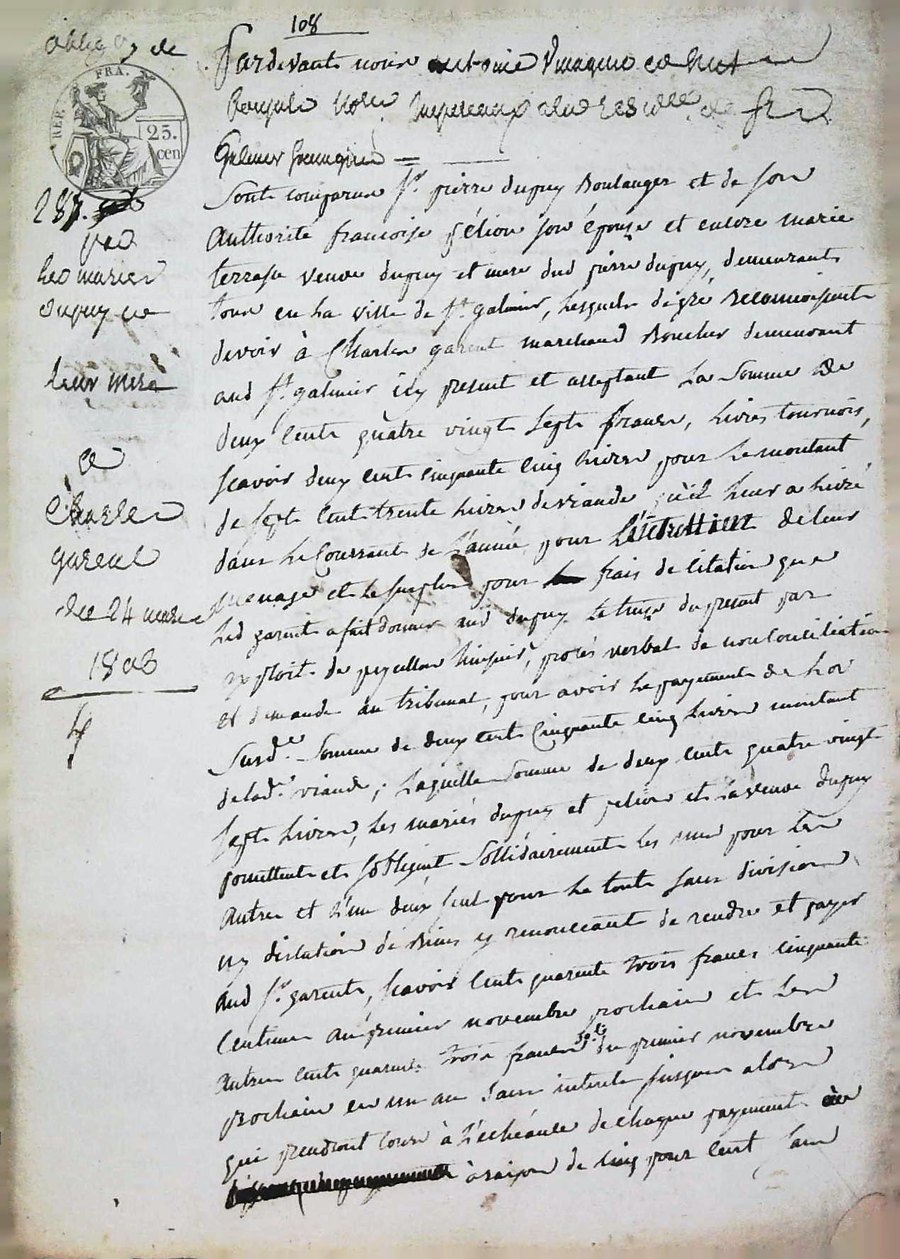 108
oblig on de
REP. FRA.
25.
cen
287.
par
les mariés
dupuy et
leur mere
a
Charles
garent
du 24 mars
1806
Pardevant nous antoine et
Notres Imperiaux de St
Galmier Soussignés
Sont comparus Sr pierre dupuy Boulanger et de son
Authorité francoise pélion son épouse et encore marie
terrasse veuve dupuy et mere dud pierre dupuy, demeurants
tous en la ville de St galmier, lesquels de gré Reconnoissent
devoir à Charles garent marchand Boucher demeurant
aud St galmier icy present et acceptant la Somme de
deux cents quatre vingt Sept francs, livres tournois,
scavoir deux cent cinquante cinq livres pour le montant
de sept cent trente livres de viande qu'il leur a livré
dans le Courrant de l'année pour L'entretient de leur
menage et le surplus pour frais de citation que
led garent a fait donner aud dupuy le treize du present par
exploit de huissier, procès verbal de non Conciliation
et demande au tribunal, pour avoir le payement de la
Susde Somme de deux cent Cinquante cinq livres montant
de lade viande; Laquelle somme de deux cents quatre vingt
Sept livres, les mariés dupuy et pelion et la veuve dupuy
promettent et s'obligent Sollidairement les uns pour les
Autres et l'un deux seul pour le toute sans division
ny distation de Biens y renonceant de rendre et payer
Aud Sr garent, scavoir Cent quarente trois francs cinquante
Centimes au premier novembre prochain et les
Autres cents quarente trois francs 50 cs du premier novembre
prochain en un an Sans interets jusques alors
qui prendront cours à l'echéance de chaque payement
à raison de cinq pour Cent Sans